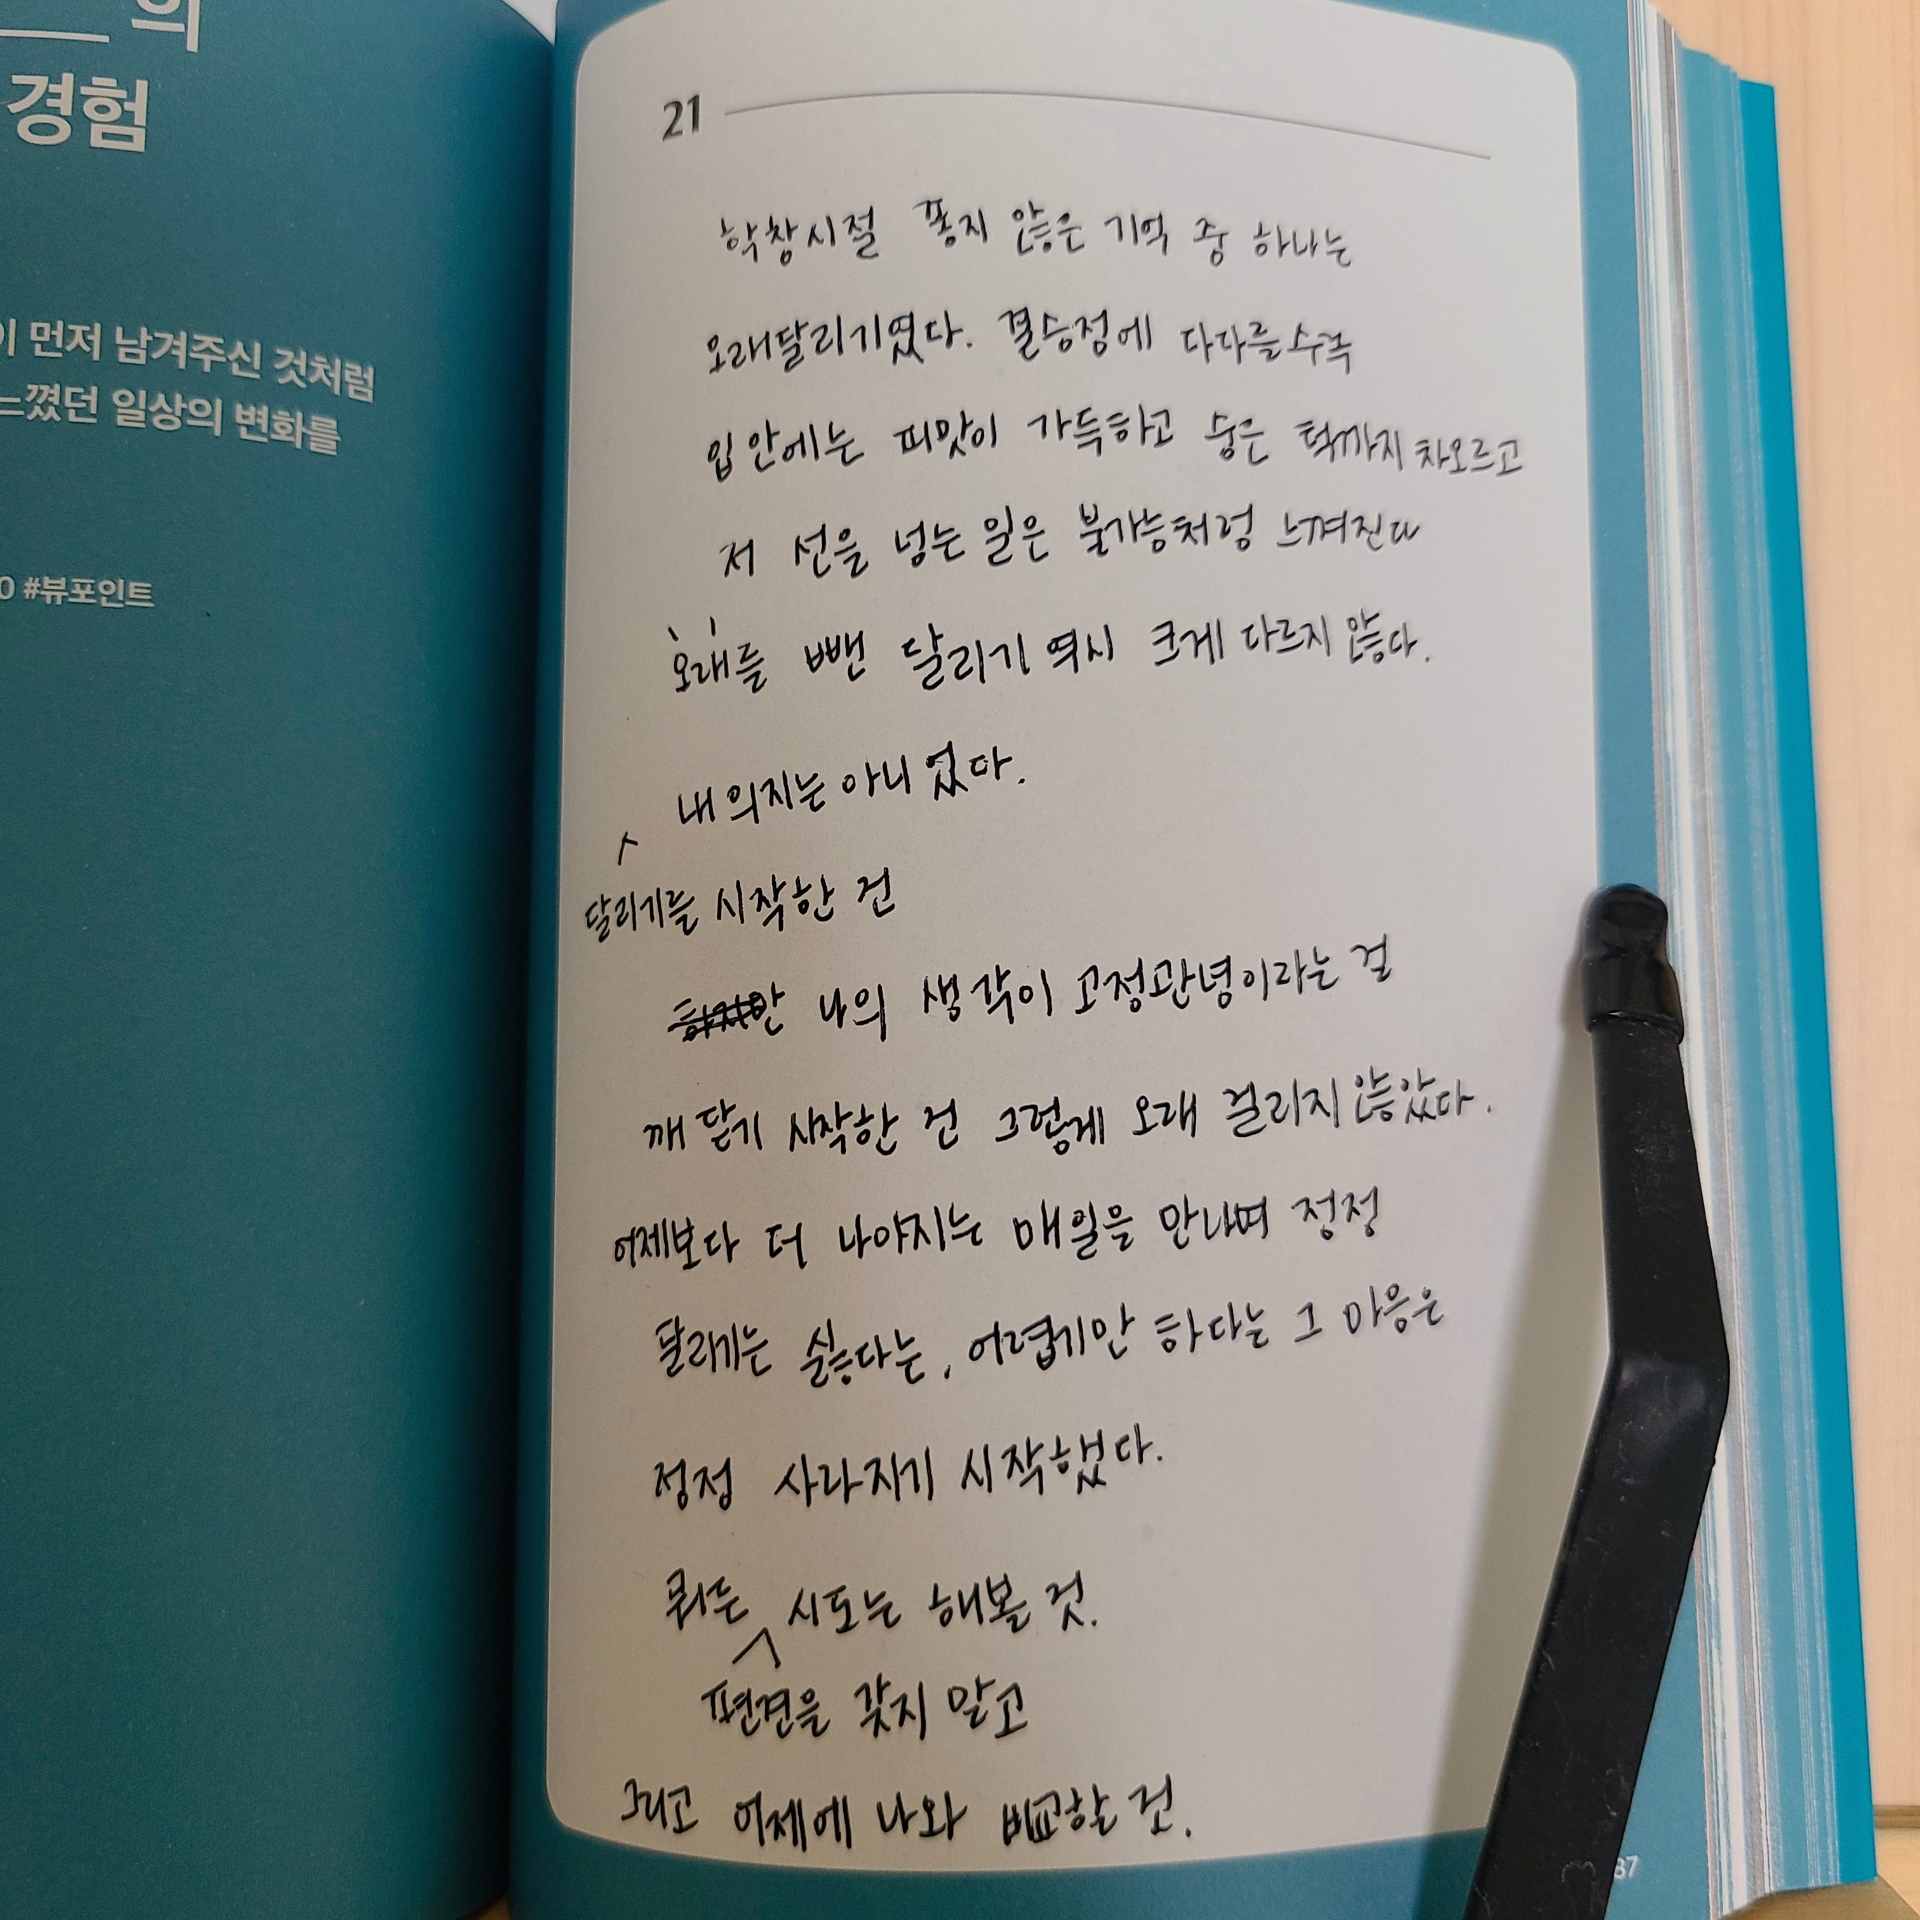 의
경험
이 먼저 남겨주신 것처럼
느꼈던 일상의 변화를
0 #뷰포인트
21
학창시절 좋지 않은 기억 중 하나는
오래달리기였다. 결승점에 다다를수록
입 안에는 피맛이 가득하고 숨은 턱까지 차오르고
저 선을 넘는 일은 불가능처럼 느껴진다
'오래'를 뺀 달리기 역시 크게 다르지 않다.
내 의지는 아니었다.
달리기를 시작한 건
나의 생각이 고정관념이라는 걸
깨닫기 시작한 건 그렇게 오래 걸리지 않았다.
어제보다 더 나아지는 매일을 만나며 점점
달리기는 싫다는, 어렵기만 하다는 그 마음은
점점 사라지기 시작했다.
뭐든 시도는 해볼 것.
편견을 갖지 말고
그리고 어제에 나와 비교할 것.
37